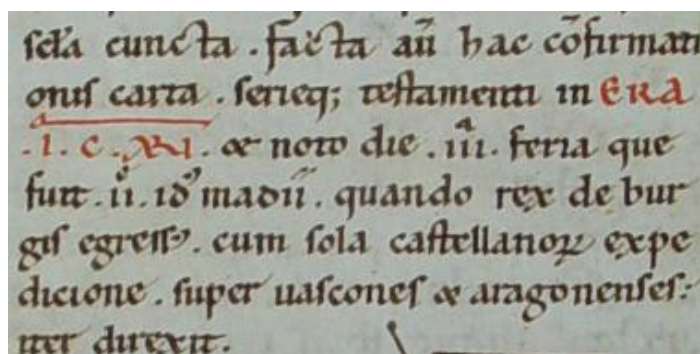 scła cuncta . facta aū hac cōfirmati
onis carta . serieq; testamenti in ERA
. I . C . XVI . & noto die . iiiͣ . feria que
fuit . iiº . idꝰ madii . quando rex de bur
gis egressꝰ . cum sola castellanoꝝ expe
dicione . super uascones & aragonenses :
iter direxit .